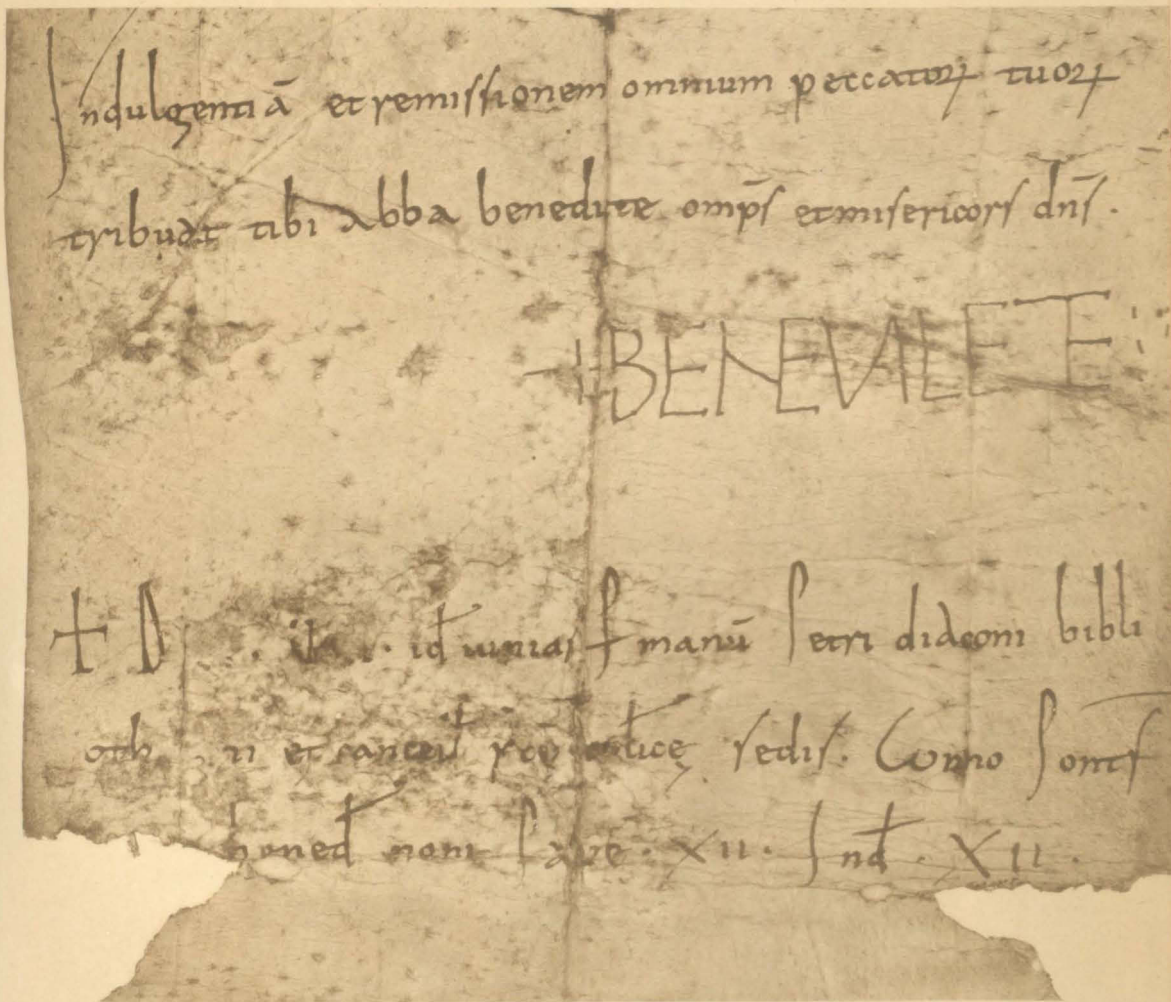 Indulgentiā et remissionem omnium peccatoꝝ tuoꝝ
tribuat tibi abba benedicte omp̄s et misericors dn̄s.
+ BENEVALETE
+ D id iunias p manū Petri diaconi bibli
oth et cancell sedis. Anno Pontf
noni Papę. XII. Ind. XII.